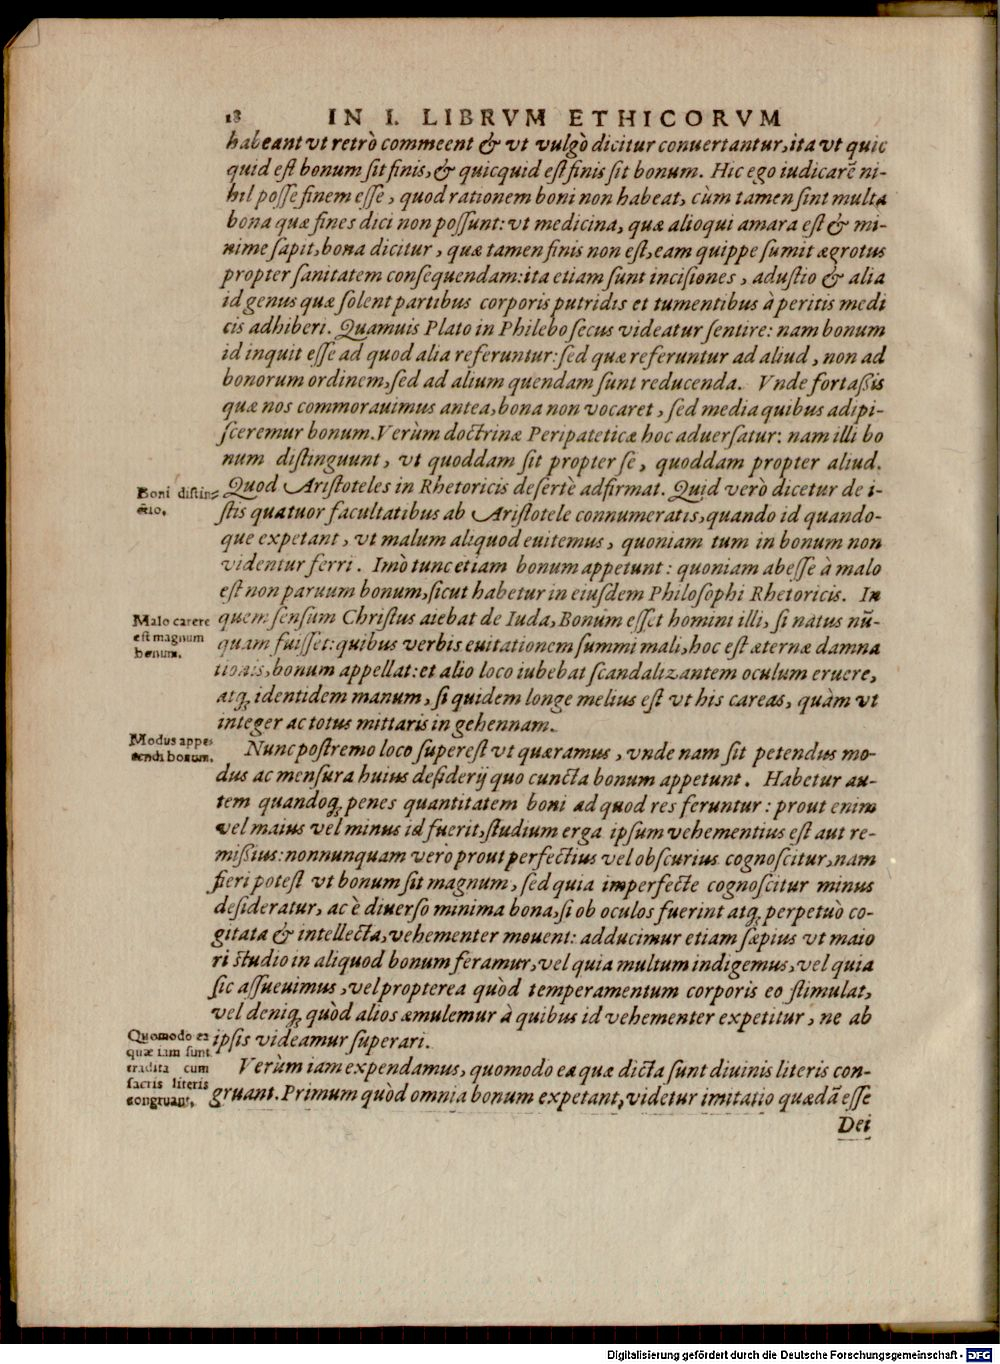 18 IN I. LIBRVM ETHICORVM
habeant vt retrò commeent & vt vulgò dicitur conuertantur, ita vt quic
quid est bonum sit finis, & quicquid est finis sit bonum. Hic ego iudicarē ni-
hil posse finem esse, quod rationem boni non habeat, cùm tamen sint multa
bona quæ fines dici non possunt: vt medicina, quæ alioqui amara est & mi-
nime sapit, bona dicitur, quæ tamen finis non est, eam quippe sumit ægrotus
propter sanitatem consequendam: ita etiam sunt incisiones, adustio & alia
id genus quæ solent partibus corporis putridis et tumentibus à peritis medi
cis adhiberi. Quamuis Plato in Philebo secus videatur sentire: nam bonum
id inquit esse ad quod alia referuntur: sed quæ referuntur ad aliud, non ad
bonorum ordinem, sed ad alium quendam sunt reducenda. Vnde fortaßis
quæ nos commorauimus antea, bona non vocaret, sed media quibus adipi-
sceremur bonum. Verùm doctrinæ Peripateticæ hoc aduersatur: nam illi bo
num distinguunt, vt quoddam sit propter se, quoddam propter aliud.
Boni distin-
ctio.
Quod Aristoteles in Rhetoricis desertè adfirmat. Quid verò dicetur de i-
stis quatuor facultatibus ab Aristotele connumeratis, quando id quando-
que expetant, vt malum aliquod euitemus, quoniam tum in bonum non
videntur ferri. Imò tunc etiam bonum appetunt: quoniam abesse à malo
est non paruum bonum, sicut habetur in eiusdem Philosophi Rhetoricis. In
Malo carere
est magnum
bonum.
quem sensum Christus aiebat de Iuda, Bonum esset homini illi, si natus nū-
quam fuisset: quibus verbis euitationem summi mali, hoc est æternæ damna
tionis, bonum appellat: et alio loco iubebat scandalizantem oculum eruere,
atq; identidem manum, si quidem longe melius est vt his careas, quàm vt
integer ac totus mittaris in gehennam.
Modus appe-
tendi bonum.
Nunc postremo loco superest vt quæramus, vnde nam sit petendus mo-
dus ac mensura huius desiderij quo cuncta bonum appetunt. Habetur au-
tem quandoq; penes quantitatem boni ad quod res feruntur: prout enim
vel maius vel minus id fuerit, studium erga ipsum vehementius est aut re-
mißius: nonnunquam verò prout perfectius vel obscurius cognoscitur, nam
fieri potest vt bonum sit magnum, sed quia imperfecte cognoscitur minus
desideratur, ac è diuerso minima bona, si ob oculos fuerint atq; perpetuò co-
gitata & intellecta, vehementer mouent: adducimur etiam sæpius vt maio
ri studio in aliquod bonum feramur, vel quia multum indigemus, vel quia
sic assueuimus, vel propterea quòd temperamentum corporis eo stimulat,
vel deniq; quòd alios æmulemur à quibus id vehementer expetitur, ne ab
ipsis videamur superari.
Quomodo ea
quæ iam sunt
tradita cum
sacris literis
congruant.
Verùm iam expendamus, quomodo ea quæ dicta sunt diuinis literis con-
gruant. Primum quòd omnia bonum expetant, videtur imitatio quædā esse
Dei
Digitalisierung gefördert durch die Deutsche Forschungsgemeinschaft - DFG